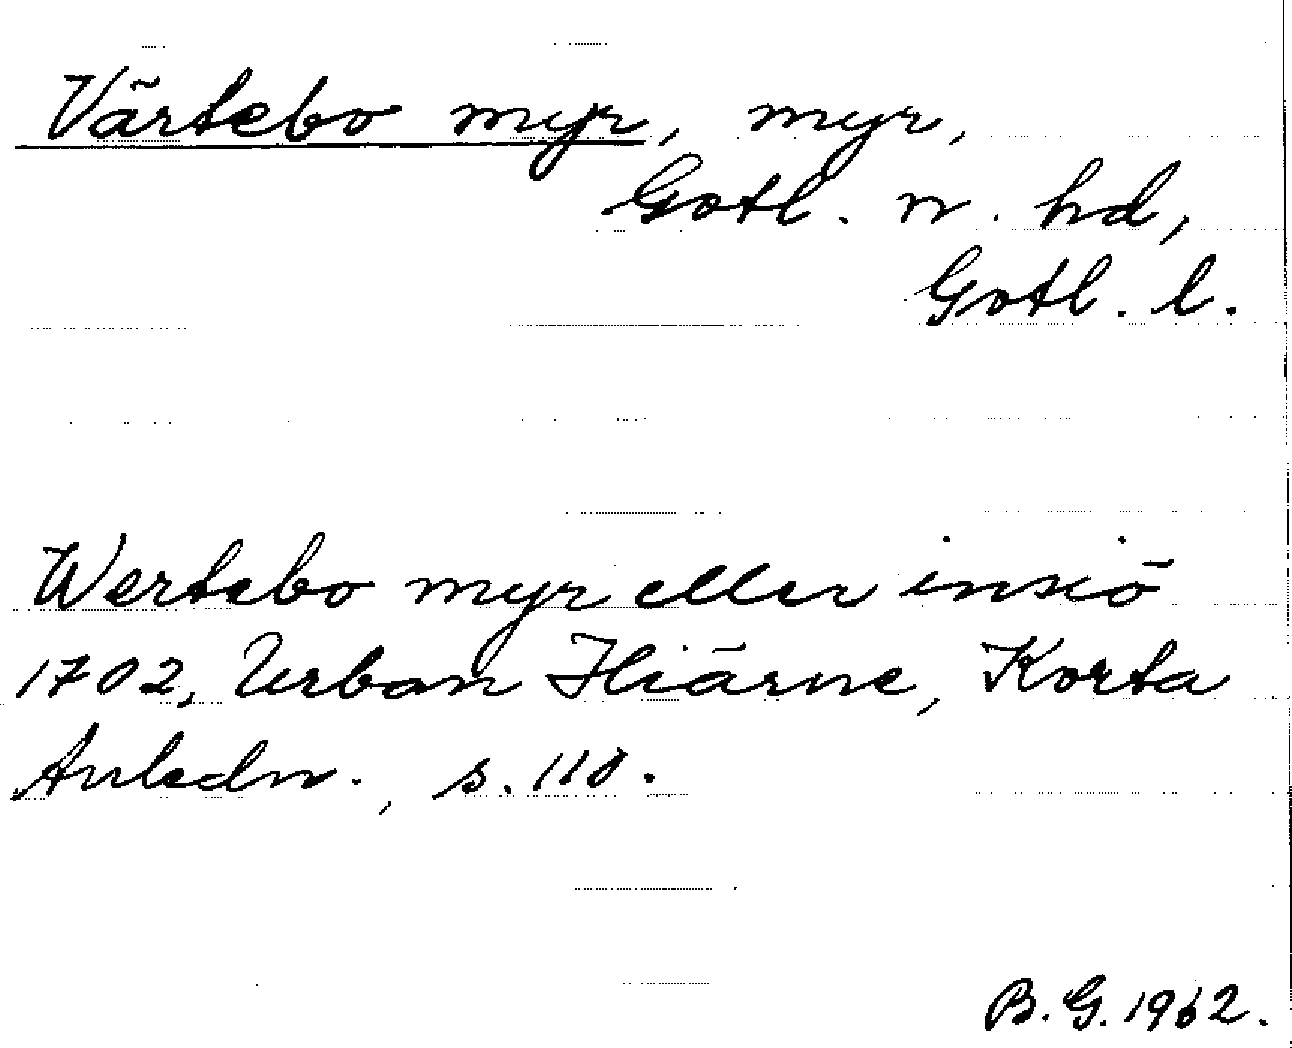 Värtebo myr, myr,
Gotl. n. hd,
Gotl. l.
Wertebo myr eller insiö
1702, Urban Hiärne, Korta
Anledn., s. 110.
B. G. 1962.